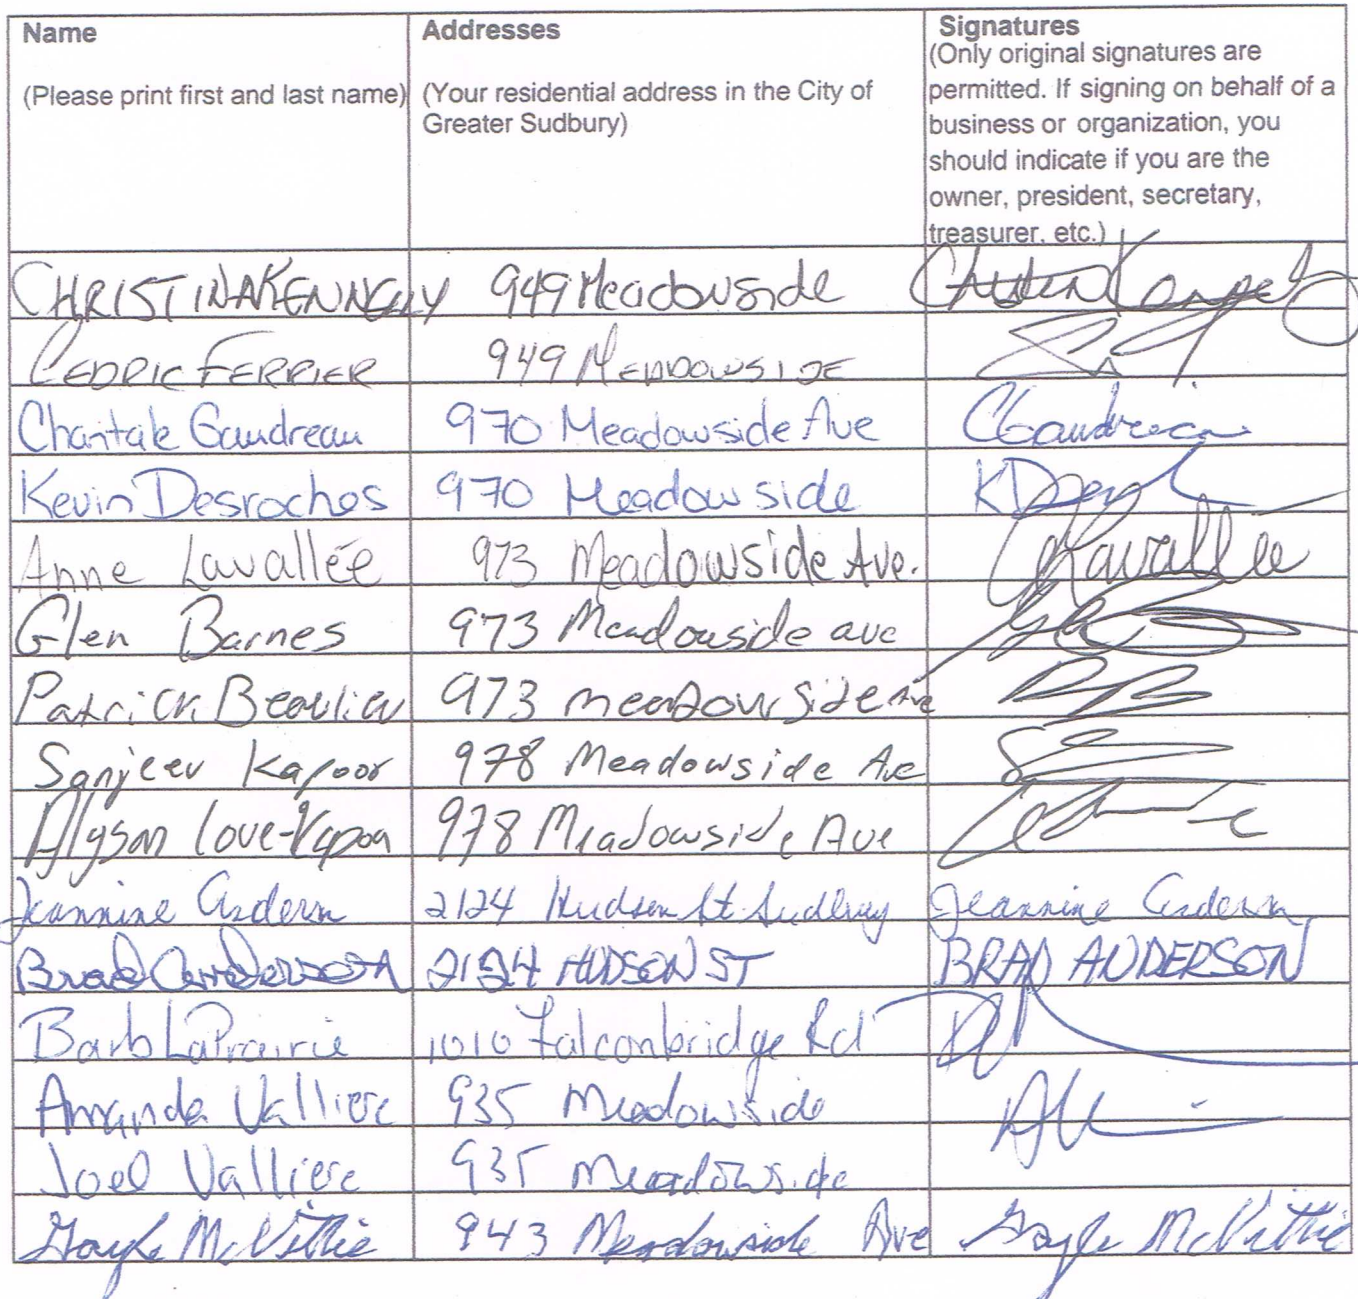 Name
(Please print first and last name)
Addresses
(Your residential address in the City of
Greater Sudbury)
Signatures
(Only original signatures are
permitted. If signing on behalf of a
business or organization, you
should indicate if you are the
owner, president, secretary,
treasurer, etc.)
CHRISTINA KENNELLY 949 Meadowside
CEDRIC FERRIER 949 MEADOWSIDE
Chantale Gaudreau 970 Meadowside Ave CGaudreau
Kevin Desroches 970 Meadowside
Anne Lavallée 973 Meadowside Ave. Lavallée
Glen Barnes 973 Meadowside ave
Patrick Beaulieu 973 meadowside Ave
Sanjeev Kapoor 978 Meadowside Ave
Alyson Love-Kapoor 978 Meadowside Ave
Jeannine 2124 Hudson St. Sudbury Jeannine
Brad Anderson 2124 HUDSON ST BRAD ANDERSON
Barb LaPrairie 1010 Falconbridge Rd
Amanda Valliere 935 Meadowside
Joel Valliere 935 Meadowside
Gayle McVittie 943 Meadowside Ave Gayle McVittie